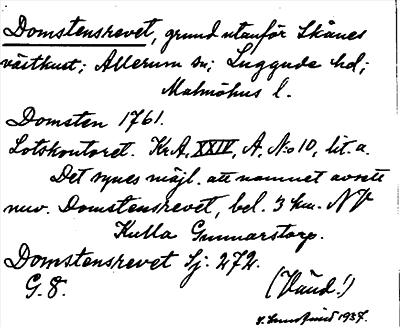 Domstensrevet, grund utanför Skånes
västkust; Allerum sn; Luggude hd;
Malmöhus l.
Domsten 1761.
Lotskontoret. KrA, XXIV, A, No 10, lit. a.
Det synes möjl. att namnet avsett
nuv. Domstensrevet, bel. 3 km. NV
Kulla Gunnarstorp.
Domstensrevet Sj. 272.
G. 8.
(Vänd!)
1937.